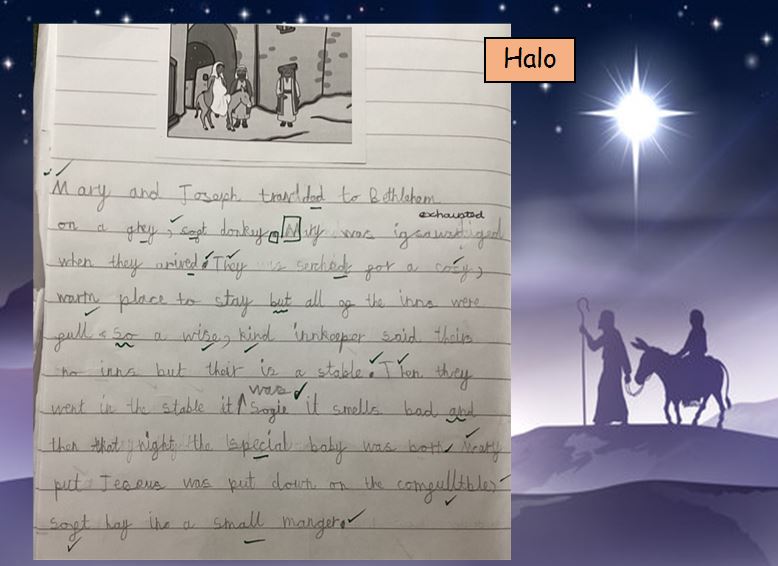 Halo
Mary and Joseph travlded to Bethleham
exhausted
on a grey, sogt donkey. Mary was
when they arived. They is serched gor a cosy,
warm place to stay but all og the inns were
gull so a wise, kind innkeeper said theirs
no inns but their is a stable. Then they
was
went in the stable it it smells bad and
then that night the special baby was born
put Jeseus was put down on the
sogt hay ino a small manger.